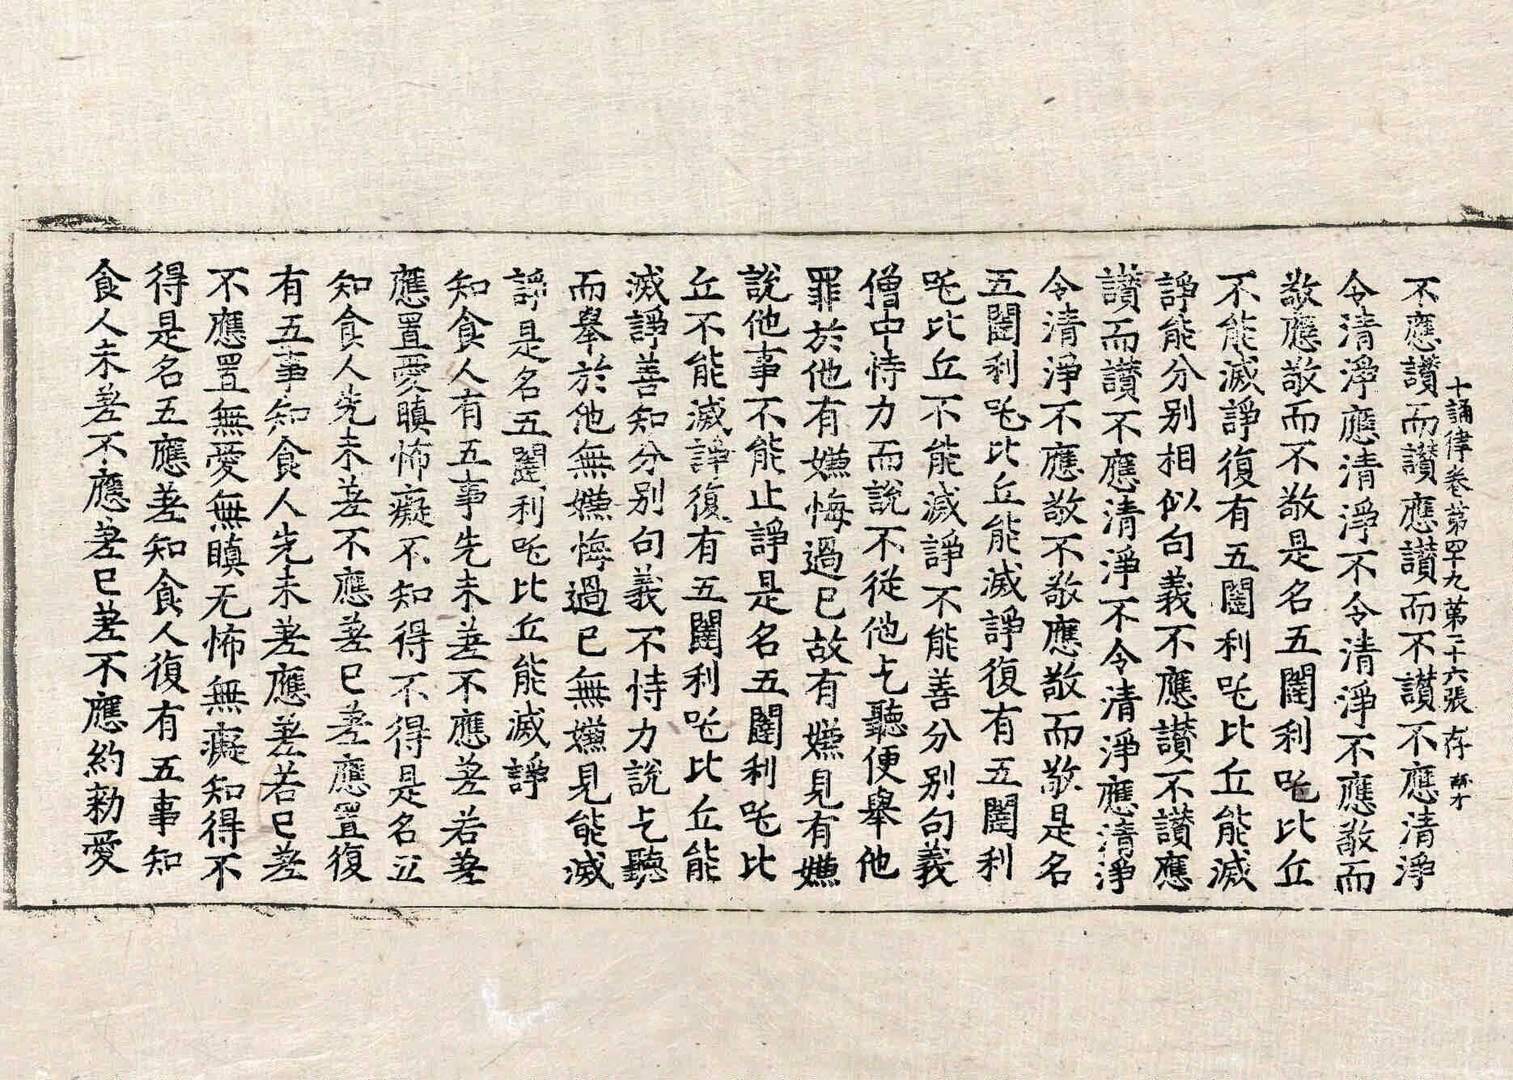 十誦律卷第四十九 第二十六張 存
不應讃而讃應讃而不讃不應清淨
令清淨應清淨不令清淨不應敬而
敬應敬而不敬是名五闥利吒比丘
不能滅諍復有五闥利吒比丘能滅
諍能分别相似句義不應讃不讃應
讃而讃不應清淨不令清淨應清淨
令清淨不應敬不敬應敬而敬是名
五闥利吒比丘能滅諍復有五闥利
吒比丘不能滅諍不能善分别句義
僧中恃力而說不從他乞聽便舉他
罪於他有嫌悔過已故有嫌見有嫌
說他事不能止諍是名五闥利吒比
丘不能滅諍復有五闥利吒比丘能
滅諍善知分别句義不恃力說乞聽
而舉於他無嫌悔過已無嫌見能滅
諍是名五闥利吒比丘能滅諍
知食人有五事先未差不應差若差
應置愛瞋怖癡不知得不得是名五
知食人先未差不應差已差應置復
有五事知食人先未差應差若已差
不應置無愛無瞋无怖無癡知得不
得是名五應差知食人復有五事知
食人未差不應差已差不應約勑愛